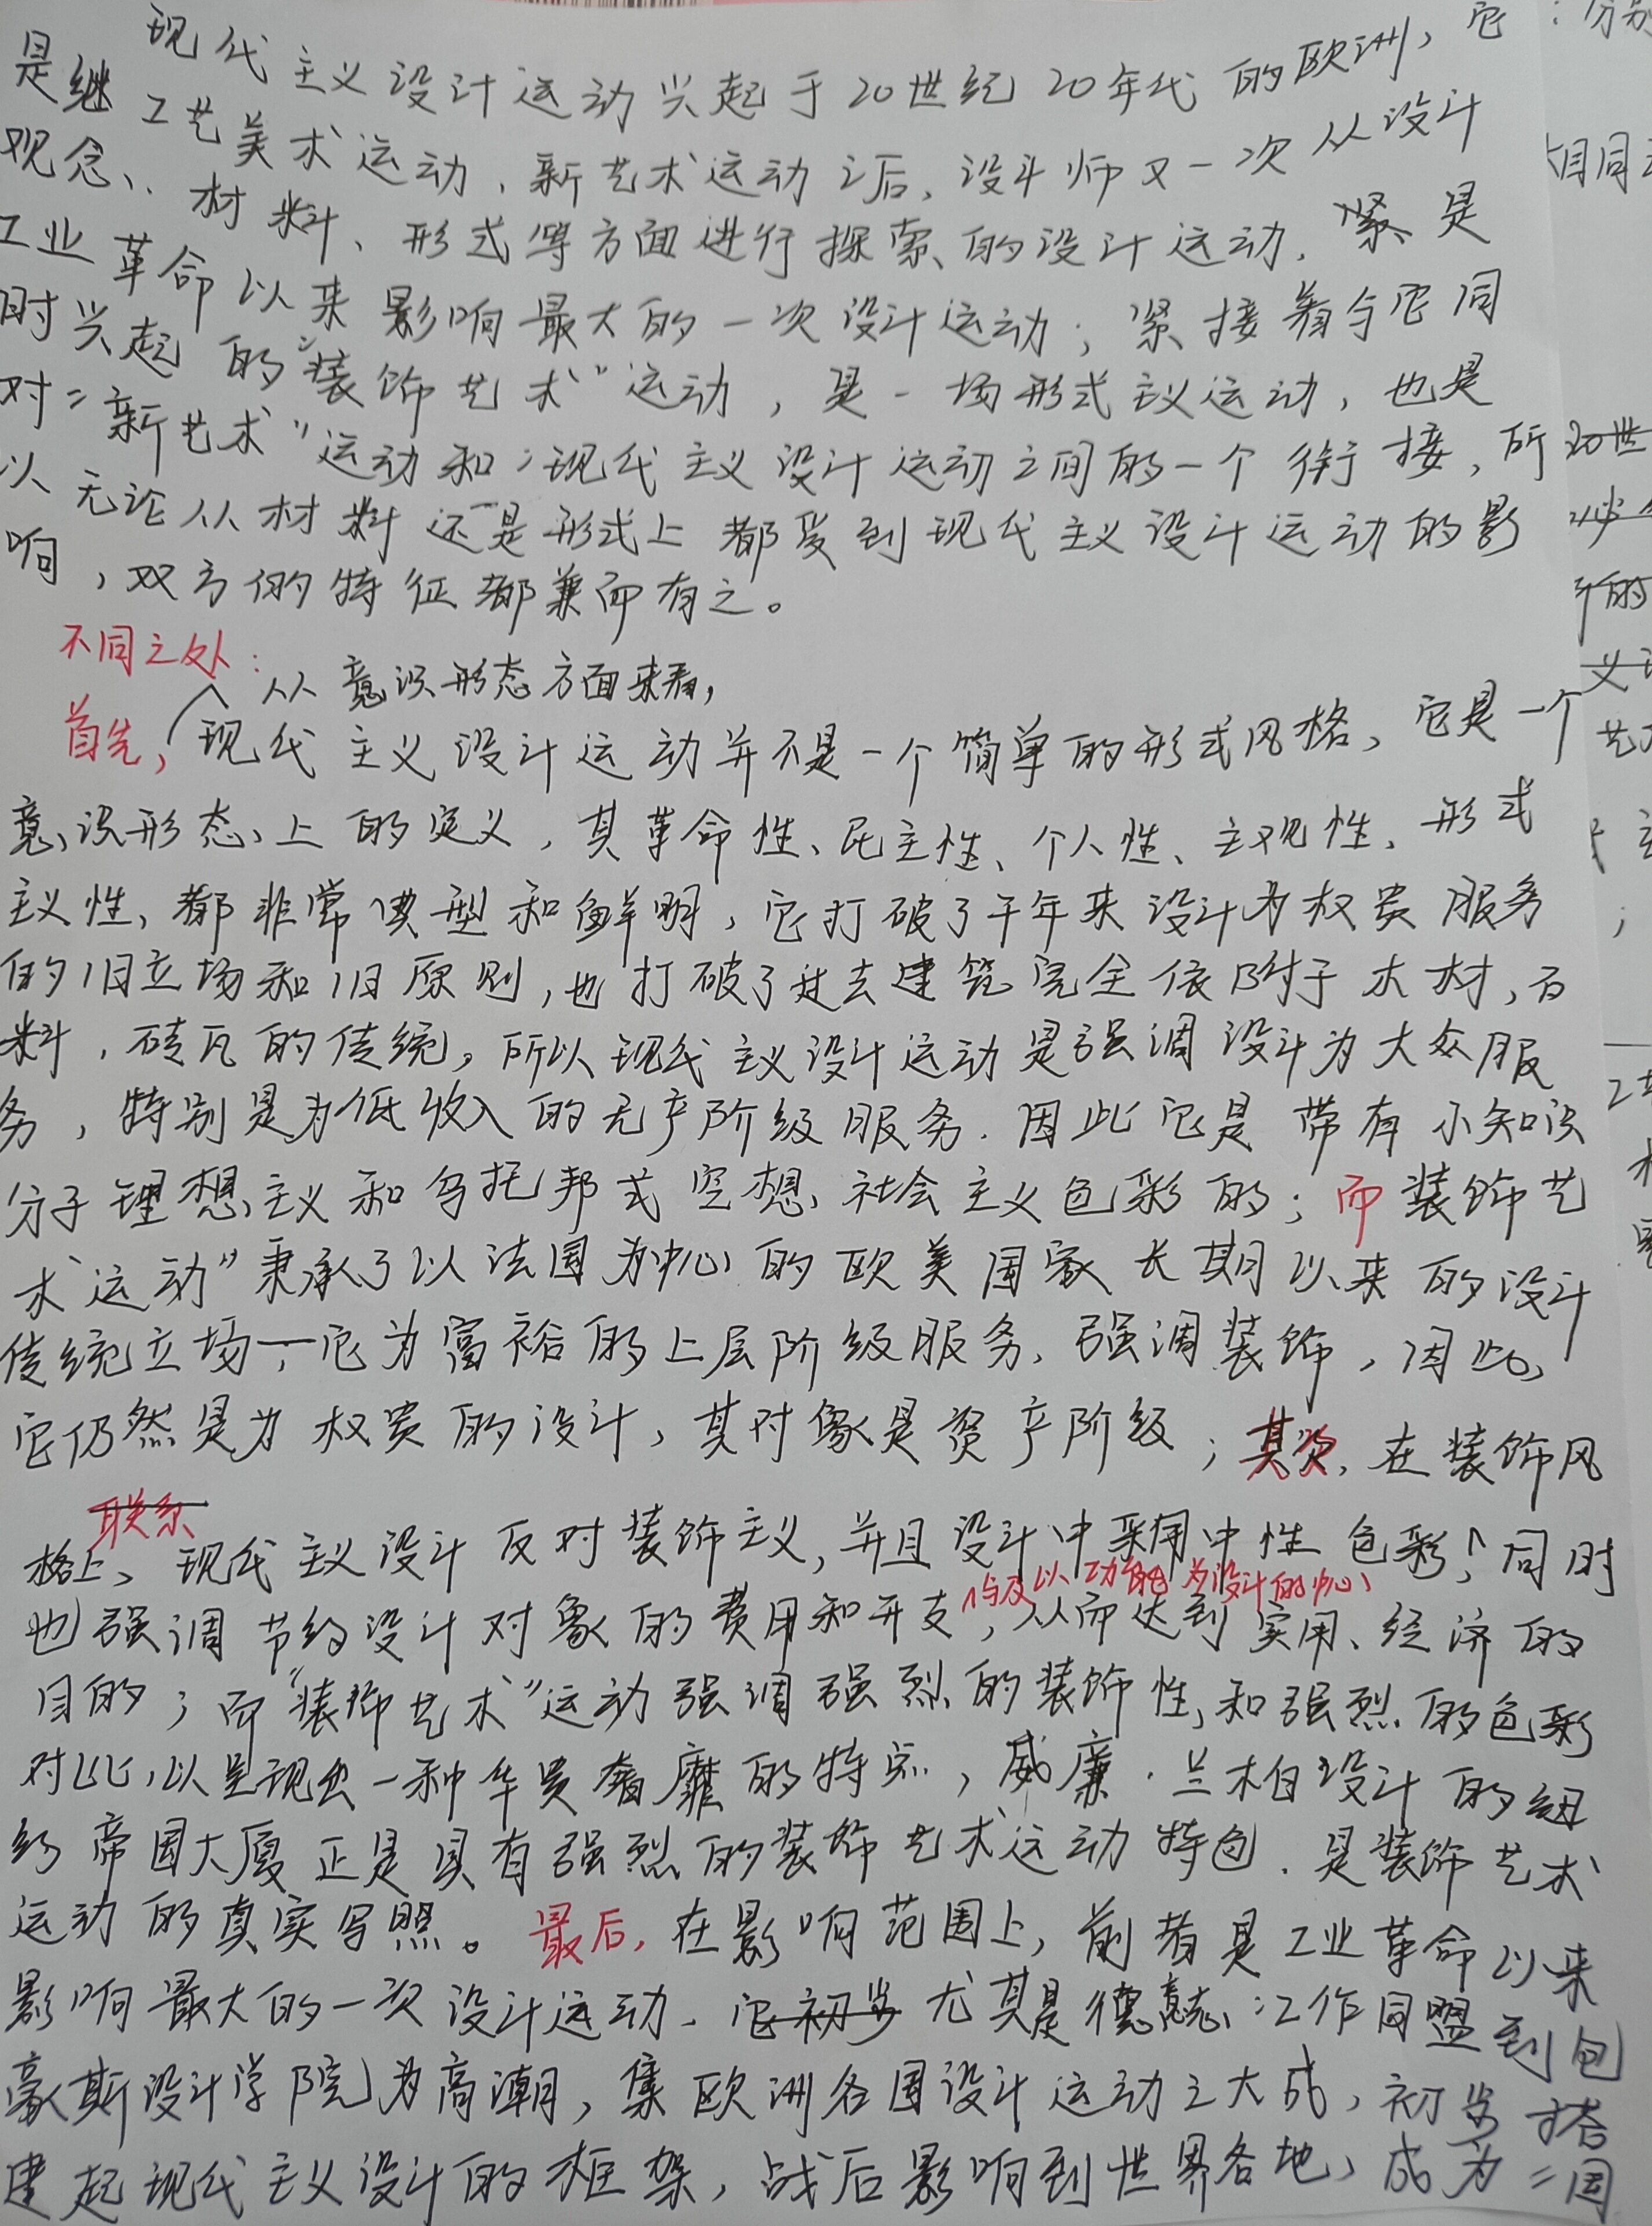 现代主义设计运动兴起于20世纪20年代的欧洲，它
是继工艺美术运动、新艺术运动之后，设计师又一次从设计
观念、材料、形式等方面进行探索的设计运动，紧是
工业革命以来影响最大的一次设计运动；紧接着与它同
时兴起的"装饰艺术"运动，是一场形式主义运动，也是
对"新艺术"运动和"现代主义设计运动之间的一个衔接，所
以无论从材料还是形式上都受到现代主义设计运动的影
响，双方的特征都兼而有之。
不同之处：
从意识形态方面来看，
首先，现代主义设计运动并不是一个简单的形式风格，它是一个
意识形态上的定义，其革命性、民主性、个人性、主观性、形式
主义性，都非常典型和鲜明，它打破了千年来设计为权贵服务
的旧立场和旧原则，也打破了过去建筑完全依附于木材，石
料，砖瓦的传统。所以现代主义设计运动是强调设计为大众服
务，特别是为低收入的无产阶级服务．因此它是带有小知识
分子理想主义和乌托邦式空想社会主义色彩的；而装饰艺
术运动"秉承了以法国为中心的欧美国家长期以来的设计
传统立场一，它为富裕的上层阶级服务、强调装饰，因此，
它仍然是为权贵的设计，其对象是资产阶级；其次，在装饰风
联系
格上、现代主义设计反对装饰主义，并且设计中采用中性色彩，同时
与及以功能为设计的中心
也强调节约设计对象的费用和开支，从而达到实用、经济的
目的；而"装饰艺术"运动强调强烈的装饰性，和强烈的色彩
对比，以呈现出一种华贵奢靡的特点，威廉·兰柏设计的纽
约帝国大厦正是具有强烈的装饰艺术运动特色．是装饰艺术
运动的真实写照。最后，在影响范围上，前者是工业革命以来
影响最大的一次设计运动、它初步尤其是德意志工作同盟到包
豪斯设计学院为高潮，集欧洲各国设计运动之大成，初步搭
建起现代主义设计的框架，战后影响到世界各地，成为"国